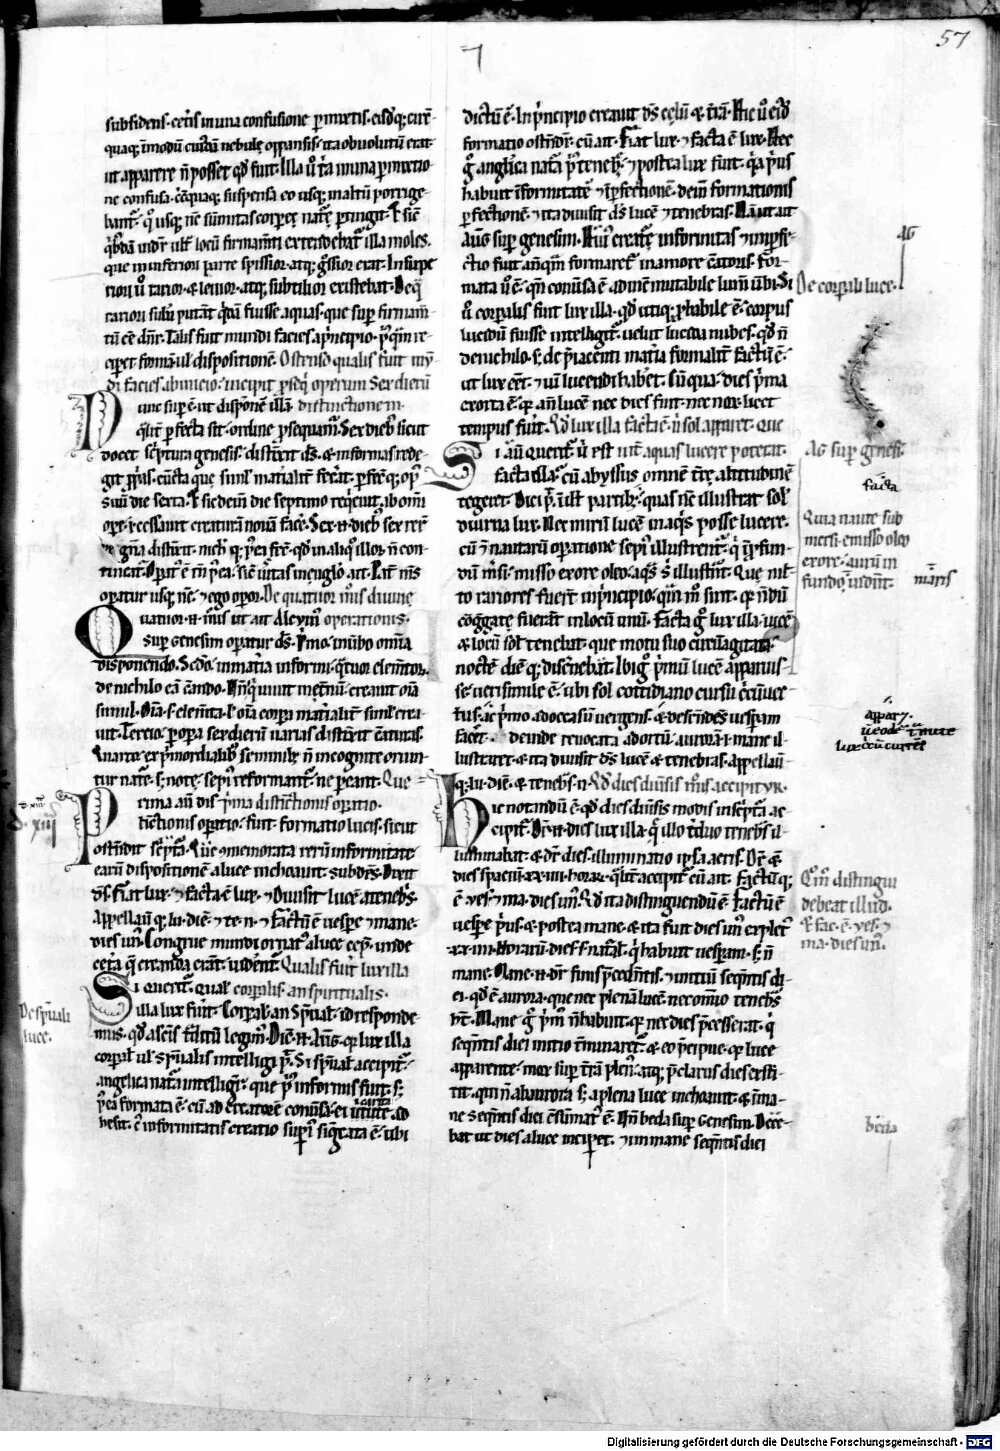 57
subsidens. ceteris in una confusione permixtis. eisdemque circum
quaque in modum cuiusdam nebule oppansis. ita obvolutum erat.
ut apparere non posset quod fuit. Illa vero tria in una permixtio
ne confusa. circumquaque suspensa eo usque in altum porrige
bantur. quo usque nunc summitas corporee nature pertingit. Et sicut
quibusdam videtur ultra locum firmamenti extendebatur illa moles.
que in inferiori parte spissior. atque grossior erat. In supe
riori vero rarior. et levior. atque subtilior existebat. De qua
rariori substantia putant quidam fuisse aquas. que super firmamen
tum esse dicuntur. Talis fuit mundi facies a principio. priusquam re
ciperet formam vel dispositionem. Ostenso qualis fuit mun
di facies ab inicio. incipit prosequi operum sex dierum
Nunc superest ut dispositionem illam. distinctionem.
qualiter perfecta sit. ordine prosequamur. Sex diebus sicut
docet scriptura genesis. distinxit deus. et in formas rede
git proprias. cuncta que simul materialiter fecerat. perfecitque opus
suum die sexta. Et sic demum die septimo requievit. ab omni
opere. id est cessavit creaturam novam facere. Sex enim diebus sex rerum
genera distinxit. nichilque postea fecit. quod in aliquo illorum non con
tineatur. Operatus est tamen postea. sicut veritas in evangelio ait. Pater meus
operatur usque nunc. et ego operor. De quatuor modis divine
Quatuor enim modis ut ait Alcuinus operationis.
super genesim operatur deus. Primo. in verbo omnia
disponendo. Secundo. in materia informi. quatuor elementorum.
de nichilo eam creando. Unde qui vivit in eternum. creavit omnia
simul. Omnia scilicet elementa. vel omnia corpora materialiter simul crea
vit. Tercio. per opera sex dierum varias distinxit creaturas.
Quarto. ex primordialibus seminibus non incognite oriun
tur nature. sed note. sepius reformantur. ne pereant. Que
Prima autem distinctionis operatio.
fuit formatio lucis. sicut
ostendit scriptura. Que commemorata rerum informitate
earum dispositionem a luce inchoavit. subdens. Dixit
deus. Fiat lux. et facta est lux. et divisit lucem a tenebris.
Appellavitque lucem diem. et tenebras noctem. et factum est vespere et mane.
dies unus. Congrue mundi ornatus a luce cepit. unde
cetera que creanda erant. viderentur. Qualis fuit lux illa
Si queritur. qualis corporalis. an spiritualis.
illa lux fuerit. corporalis an spiritualis. id responde
mus. quod a sanctis traditum legimus. Dicit enim Augustinus. quod lux illa
corporalis vel spiritualis intelligi potest. Si spiritualis accipitur.
angelica natura intelligitur. que prius informis fuit. sed
postea formata est. cum ad creatorem conversa. ei caritate ad
hesit. cuius informitatis creatio superius significata est. ubi
dictum est. In principio creavit deus celum et terram. Hic vero eiusdem
formatio ostenditur. cum ait. Fiat lux. et facta est lux. Hec
ergo angelica natura prius tenebre. et postea lux fuit. quia prius
habuit informitatem et inperfectionem. deinde formationis
perfectionem. et ita divisit deus lucem et tenebras. Nam ut ait
Augustinus super genesim. Huius creature informitas et inperfe
ctio fuit antequam formaretur in amore creatoris. For
mata vero est. quando conversa est ad incommutabile lumen verbi. Si
vero corporalis fuit lux illa. quod utique probabile est. corpus
lucidum fuisse intelligitur. velut lucida nubes. quod non
de nichilo. sed de preiacenti materia formaliter factum est.
ut lux esset. et vim lucendi haberet. cum qua dies prima
exorta est. quia ante lucem nec dies fuit. nec nox. licet
tempus fuerit. Quod lux illa facta est. ubi sol apparet. que
Si autem queritur. ubi est facta. aquas lucere poterat.
facta illa. cum abyssus omnem terre altitudinem
tegeret. Dici potest. in illis partibus. quas nunc illustrat solis
diurna lux. Nec mirum lucem in aquis posse lucere.
cum etiam nautarum operatione sepius illustrentur. qui in profun
dum mersi. misso ex ore oleo. aquas sibi illustrant. Que mul
to rariores fuerunt in principio. quam modo sunt. quia nondum
congregate fuerant in locum unum. Facta ergo lux illa. vicem
et locum solis tenebat. que motu suo circumagitata.
noctem diemque discernebat. Ibi ergo primum lucem apparuis
se. verisimile est. ubi sol cottidiano cursu circumvec
tus. ac primo ad occasum vergens. et descendens vesperam
faceret. deinde revocata ad ortum. auroram id est mane il
lustraret. et ita divisit deus lucem et tenebras. Appellavit
que lucem diem. et tenebras noctem. Quod dies diversis modis accipitur.
Hic notandum est. quod dies diversis modis in scriptura ac
cipitur. Dicitur enim dies lux illa. que illo triduo tenebras il
luminabat. et dicitur dies. illuminatio ipsa aeris. Dicitur etiam
dies spacium .xxiiii. horarum. qualiter accipitur cum ait. Factumque
est vespere et mane dies unus. Quod ita distinguendum est. Factum est
vespere prius. et postea mane. et ita fuit dies unus expletus
.xxiiii. horarum. dies scilicet naturalis. qui habuit vesperam. sed non
mane. Mane enim dicitur finis precedentis. et initium sequentis di
ei. quod est aurora. que nec plenam lucem. nec omnino tenebras
habet. Mane ergo primus non habuit. quia nec dies precesserat. qui
sequentis diei initio terminaretur. et eo precipue. quia luce
apparente. mox super terram plenus. atque preclarus dies exsti
tit. qui non ab aurora. sed a plena luce inchoavit. et in ma
ne sequentis diei consummatus est. Unde beda super genesim. Dece
bat ut dies a luce inciperet. et in mane sequentis diei
De corporali luce.
AG super genesim
facta
Quia naute sub
mersi. emisso oleo
ex ore. aurum in
fundo vident.
maris
Quomodo distingui
debeat illud.
Factum est vespere et
mane dies unus.
beda
d. xiii
De spirituali
luce.
Digitalisierung gefördert durch die Deutsche Forschungsgemeinschaft - DFG